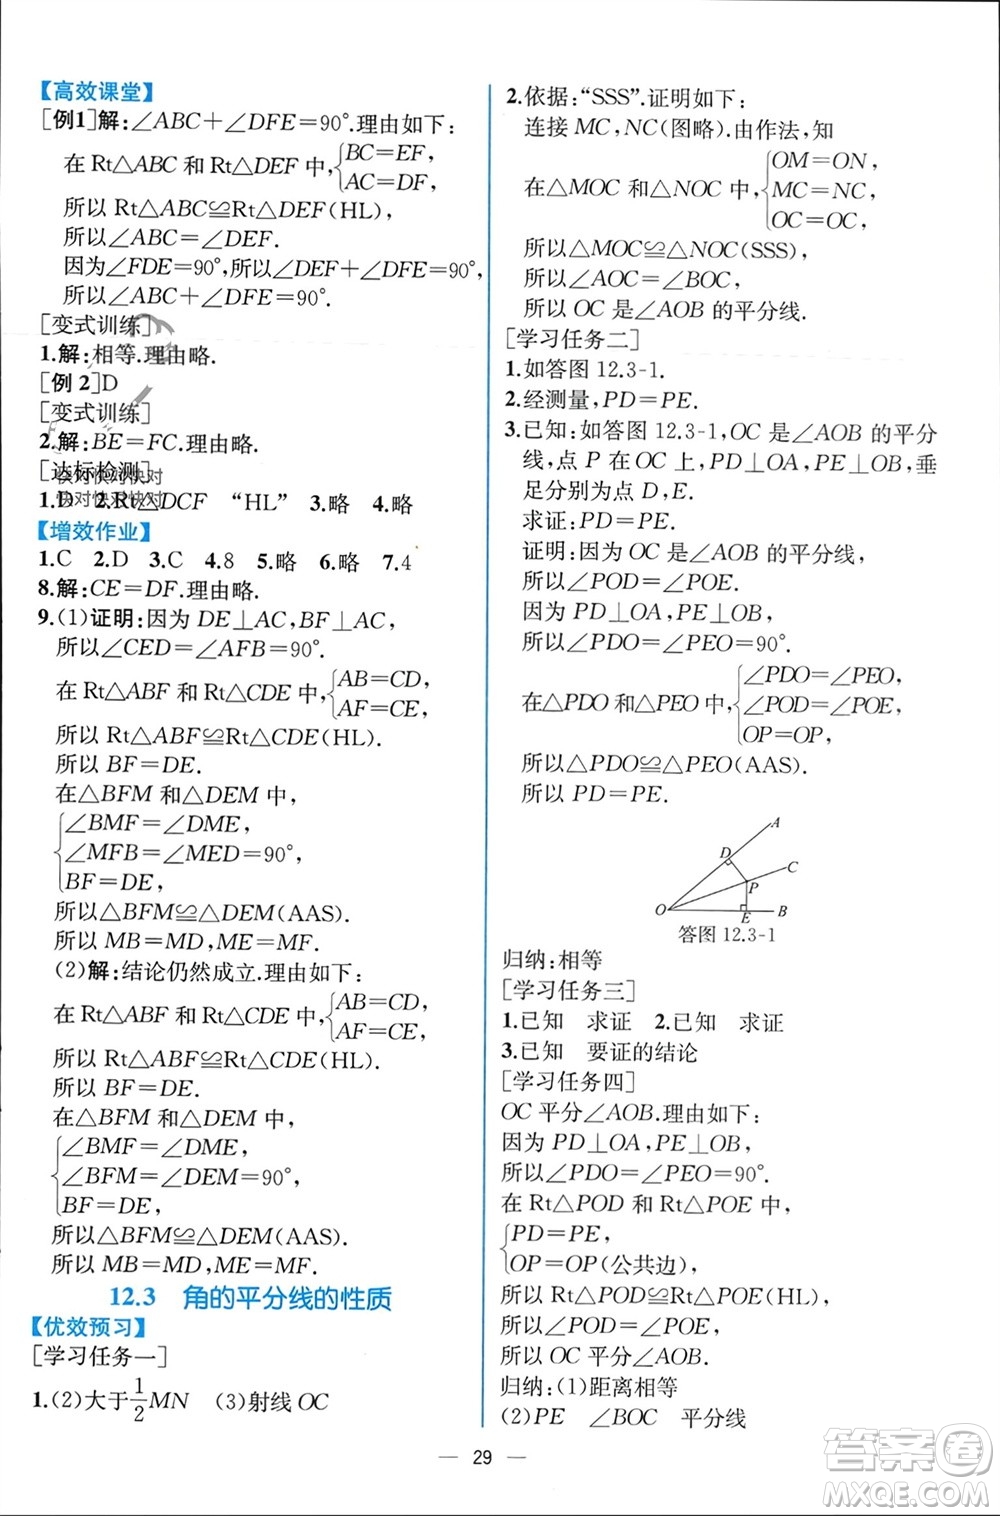 【高效课堂】
[例1]解:∠ABC+∠DFE=90°.理由如下:
在 Rt△ABC 和 Rt△DEF 中,{BC=EF,
AC=DF,
所以 Rt△ABC≌Rt△DEF(HL),
所以∠ABC=∠DEF.
因为∠FDE=90°,所以∠DEF+∠DFE=90°,
所以∠ABC+∠DFE=90°.
[变式训练]
1.解:相等.理由略.
[例 2]D
[变式训练]
2.解:BE=FC.理由略.
[达标检测]
快对快对快对
1.D 2.Rt△DCF “HL” 3.略 4.略
快对快对快对
【增效作业】
1.C 2.D 3.C 4.8 5.略 6.略 7.4
8.解:CE=DF.理由略.
9.(1)证明:因为 DE⊥AC,BF⊥AC,
所以∠CED=∠AFB=90°.
在 Rt△ABF 和 Rt△CDE 中,{AB=CD,
AF=CE,
所以 Rt△ABF≌Rt△CDE(HL).
所以 BF=DE.
在△BFM 和△DEM 中,
{∠BMF=∠DME,
∠MFB=∠MED=90°,
BF=DE,
所以△BFM≌△DEM(AAS).
所以 MB=MD,ME=MF.
(2)解:结论仍然成立.理由如下:
在 Rt△ABF 和 Rt△CDE 中,{AB=CD,
AF=CE,
所以 Rt△ABF≌Rt△CDE(HL).
所以 BF=DE.
在△BFM 和△DEM 中,
{∠BMF=∠DME,
∠BFM=∠DEM=90°,
BF=DE,
所以△BFM≌△DEM(AAS).
所以 MB=MD,ME=MF.
12.3 角的平分线的性质
【优效预习】
[学习任务一]
1.(2)大于1/2MN (3)射线 OC
2.依据:“SSS”.证明如下:
连接 MC,NC(图略).由作法,知
在△MOC 和△NOC 中,{OM=ON,
MC=NC,
OC=OC,
所以△MOC≌△NOC(SSS),
所以∠AOC=∠BOC,
所以 OC 是∠AOB的平分线.
[学习任务二]
1.如答图 12.3-1.
2.经测量,PD=PE.
3.已知:如答图 12.3-1,OC 是∠AOB 的平分
线,点 P 在 OC 上,PD⊥OA,PE⊥OB,垂
足分别为点 D,E.
求证:PD=PE.
证明:因为 OC 是∠AOB 的平分线,
所以∠POD=∠POE.
因为 PD⊥OA,PE⊥OB,
所以∠PDO=∠PEO=90°.
在△PDO 和△PEO 中,{∠PDO=∠PEO,
∠POD=∠POE,
OP=OP,
所以△PDO≌△PEO(AAS).
所以 PD=PE.
A
D
C
P
O
E
B
答图 12.3-1
归纳:相等
[学习任务三]
1.已知 求证 2.已知 求证
3.已知 要证的结论
[学习任务四]
OC 平分∠AOB.理由如下:
因为 PD⊥OA,PE⊥OB,
所以∠PDO=∠PEO=90°.
在 Rt△POD 和 Rt△POE 中,
{PD=PE,
OP=OP(公共边),
所以 Rt△POD≌Rt△POE(HL),
所以∠POD=∠POE,
所以 OC 平分∠AOB.
归纳:(1)距离相等
(2)PE ∠BOC 平分线
— 29 —
答案卷
MXQE.COM